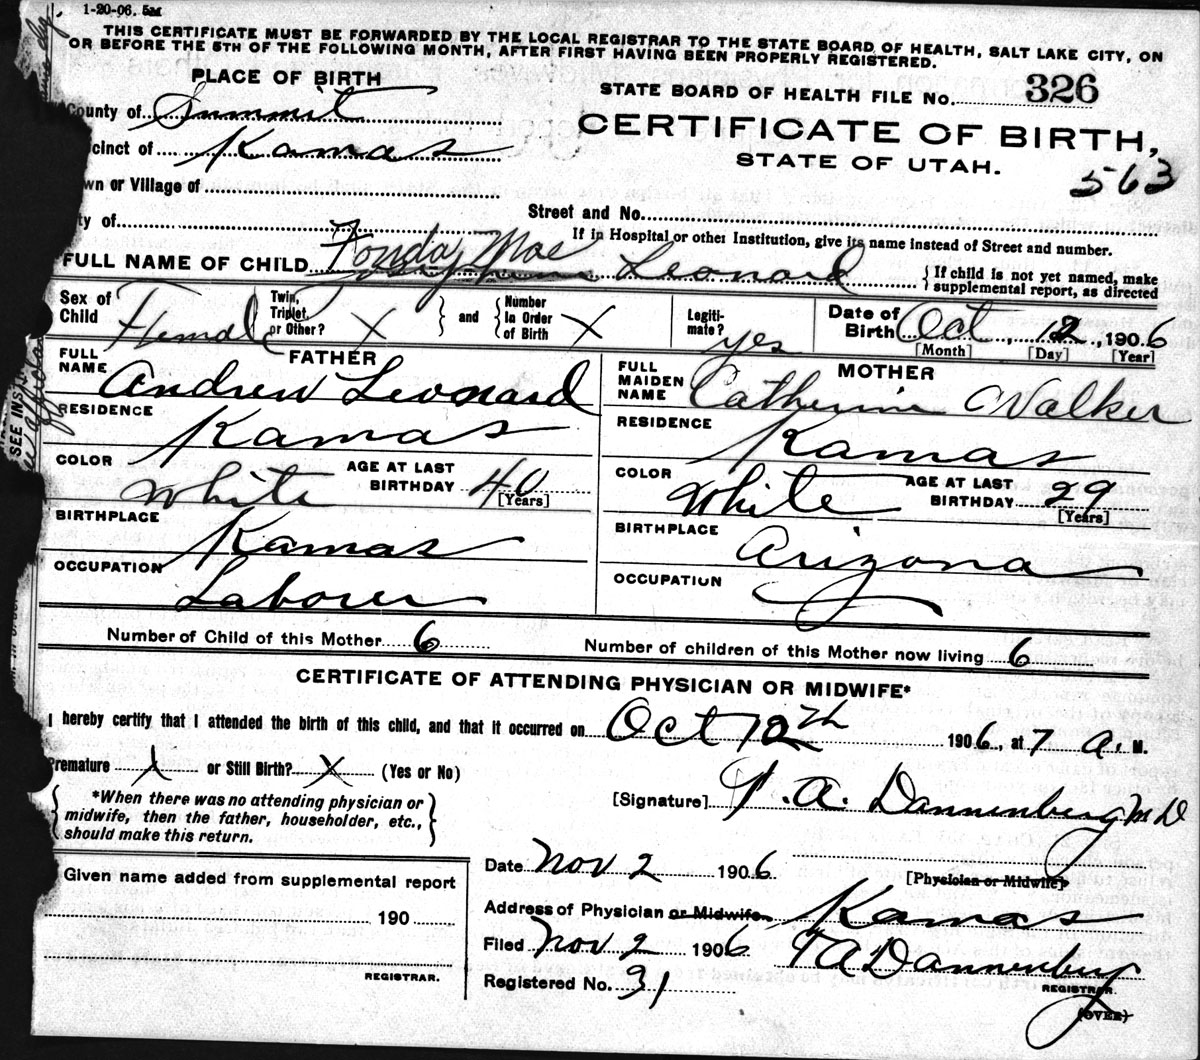 1-20-06. 5M
THIS CERTIFICATE MUST BE FORWARDED BY THE LOCAL REGISTRAR TO THE STATE BOARD OF HEALTH, SALT LAKE CITY, ON
OR BEFORE THE 5TH OF THE FOLLOWING MONTH, AFTER FIRST HAVING BEEN PROPERLY REGISTERED.
PLACE OF BIRTH
STATE BOARD OF HEALTH FILE No. 326
County of Summit
CERTIFICATE OF BIRTH,
cinct of Kamas
STATE OF UTAH.
563
wn or Village of
ty of
Street and No.
If in Hospital or other Institution, give its name instead of Street and number.
FULL NAME OF CHILD Fonda Mae Leonard
{ If child is not yet named, make
supplemental report, as directed
Sex of Child Female
Twin, Triplet, or Other? X } and { Number In Order of Birth X
Legiti-mate? yes
Date of Birth Oct 12, 1906
[Month] [Day] [Year]
FATHER
MOTHER
FULL NAME Andrew Leonard
FULL MAIDEN NAME Catherine Walker
RESIDENCE Kamas
RESIDENCE Kamas
COLOR White AGE AT LAST BIRTHDAY 40 [Years]
COLOR White AGE AT LAST BIRTHDAY 29 [Years]
BIRTHPLACE Kamas
BIRTHPLACE Arizona
OCCUPATION Laborer
OCCUPATION
Number of Child of this Mother 6 Number of children of this Mother now living 6
CERTIFICATE OF ATTENDING PHYSICIAN OR MIDWIFE*
I hereby certify that I attended the birth of this child, and that it occurred on Oct 12th 1906, at 7 a. M.
Premature X or Still Birth? X (Yes or No)
{ *When there was no attending physician or
midwife, then the father, householder, etc.,
should make this return. }
[Signature] A. Dannenberg M D
[Physician or Midwife]
Given name added from supplemental report
190
REGISTRAR.
Date Nov 2 1906
Address of Physician or Midwife Kamas
Filed Nov 2 1906 A Dannenberg
REGISTRAR.
Registered No. 31
(OVER)
SEE INS